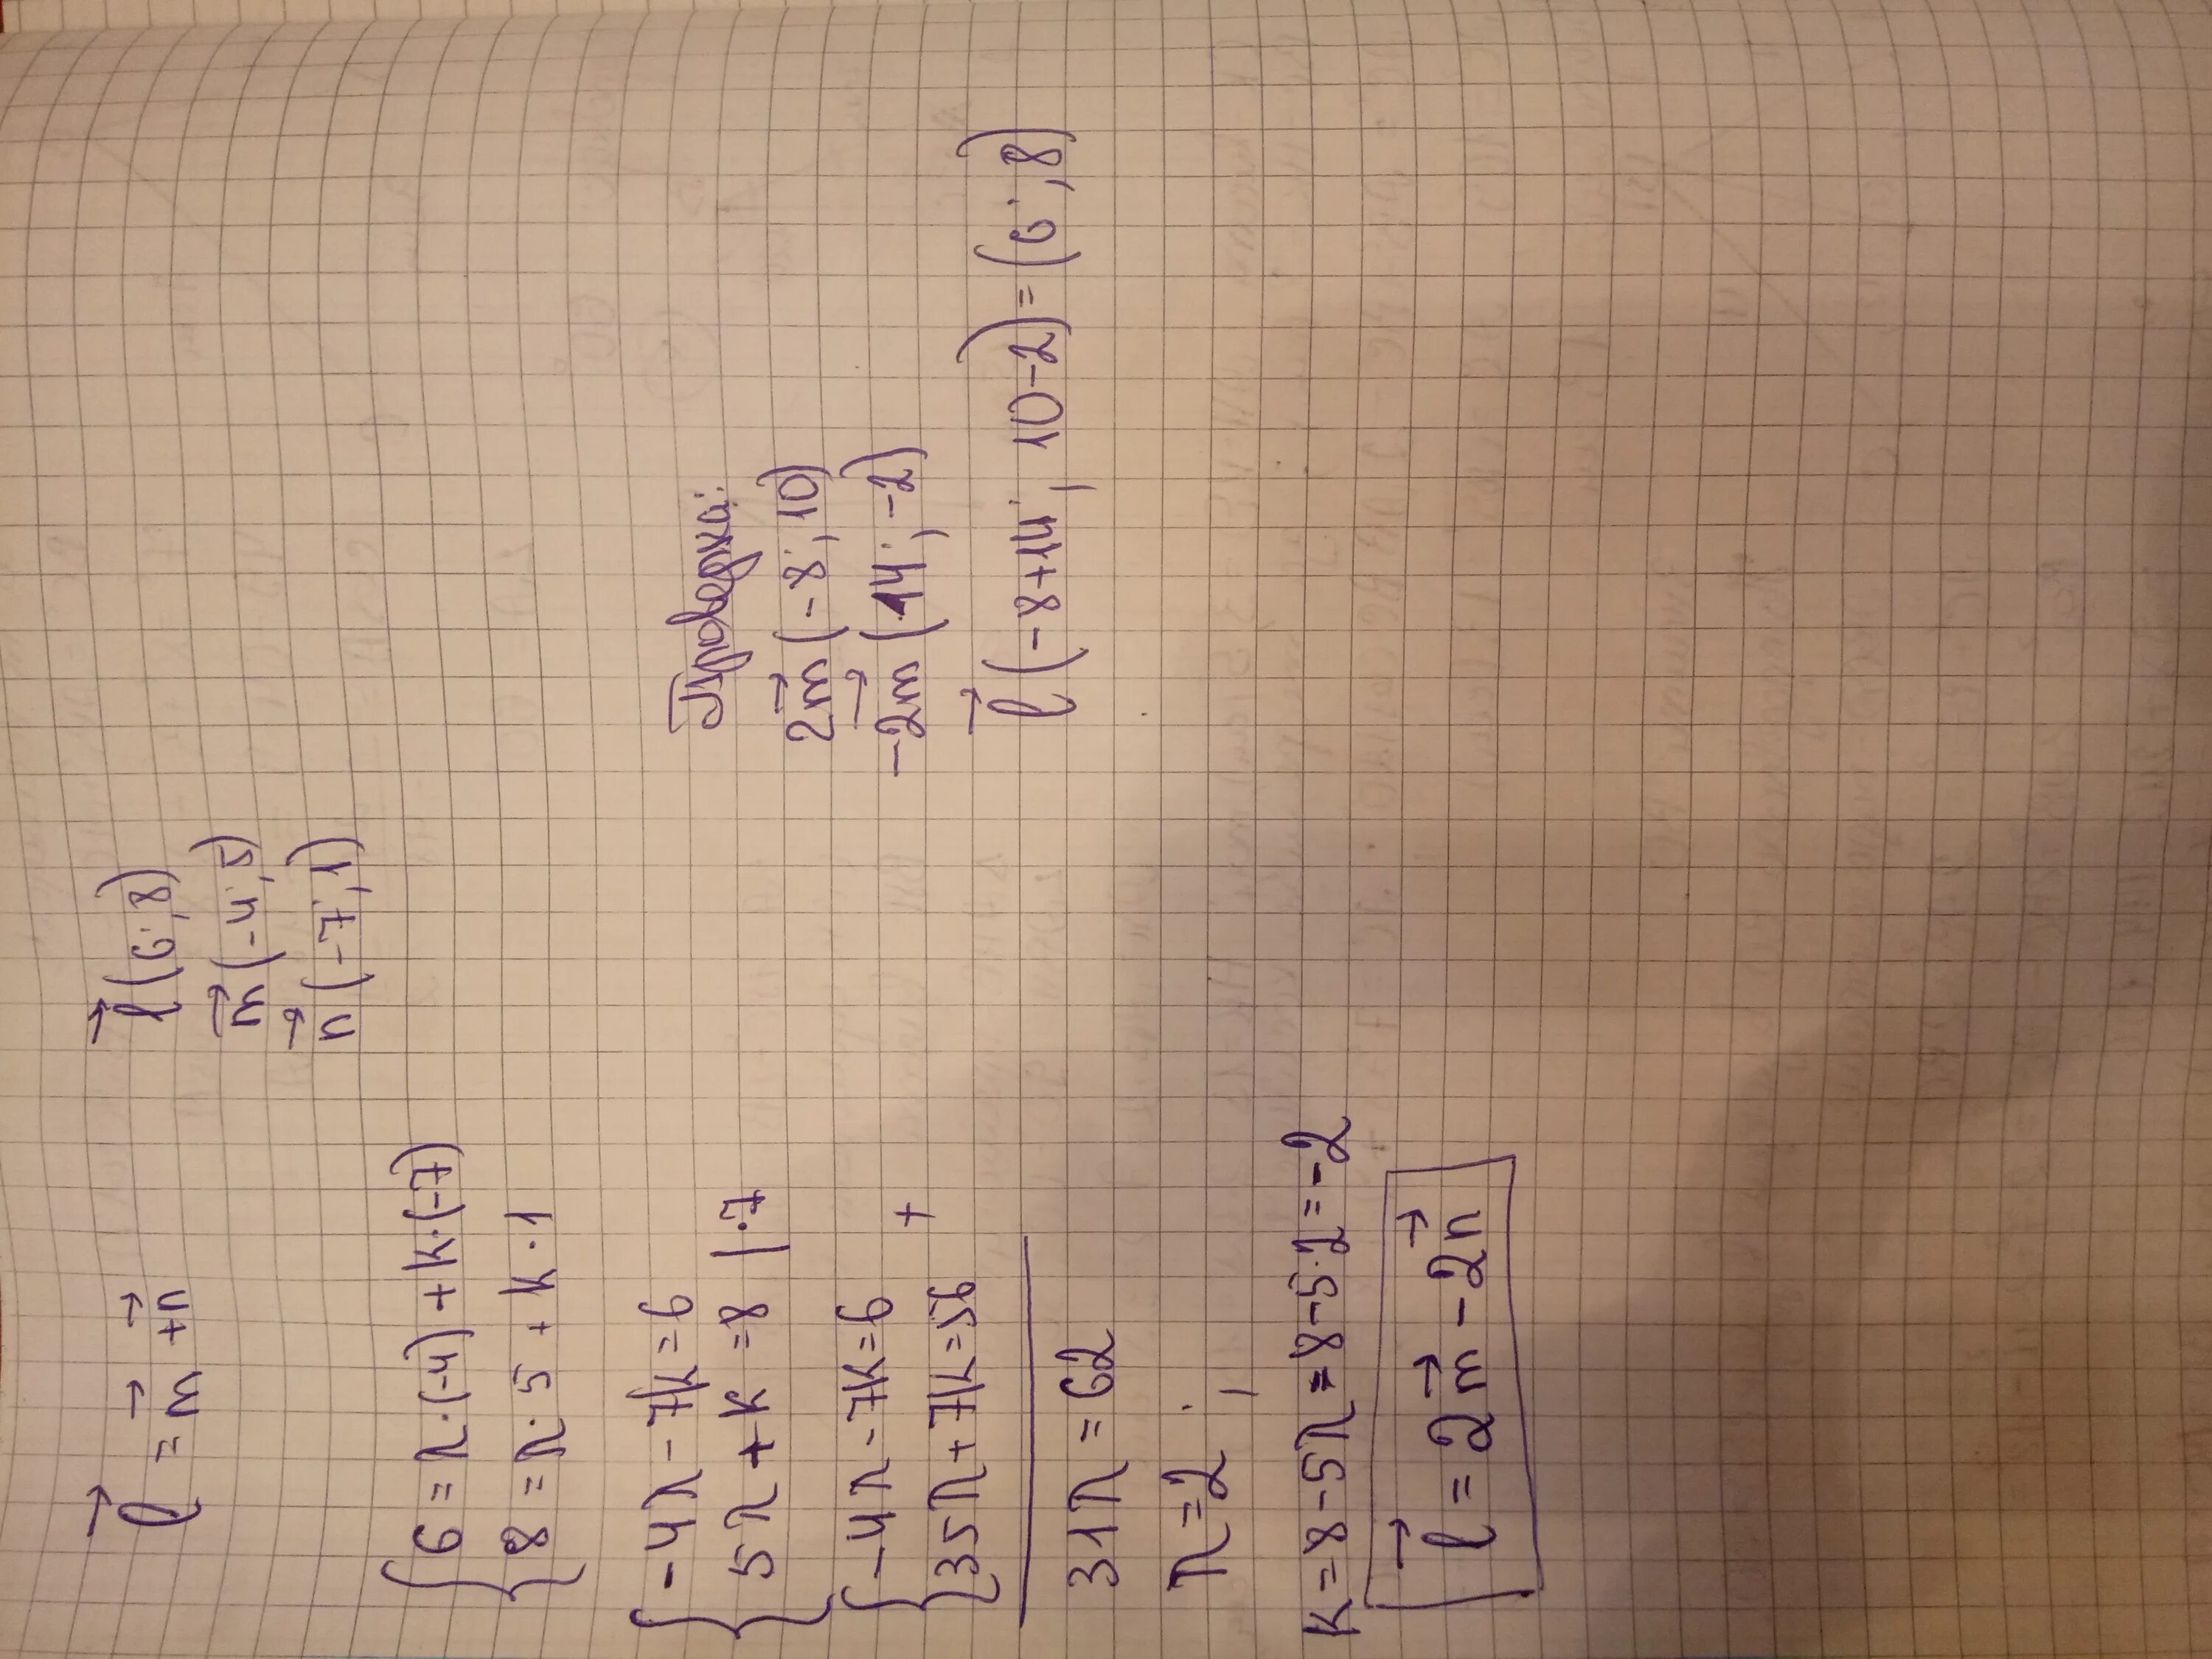 l⃗ = m⃗ + n⃗
l⃗ (6; 8)
m⃗ (-4; 5)
n⃗ (-7; 1)
{ 6 = λ·(-4) + k·(-7)
{ 8 = λ·5 + k·1
{ -4λ - 7k = 6
{ 5λ + k = 8 |·7
{ -4λ - 7k = 6
{ 35λ + 7k = 56 +
31λ = 62
λ = 2;
k = 8 - 5λ = 8 - 5·2 = -2
l⃗ = 2m⃗ - 2n⃗
Проверка:
2m⃗ (-8; 10)
-2m⃗ (14; -2)
l⃗ (-8+14; 10-2) = (6; 8)